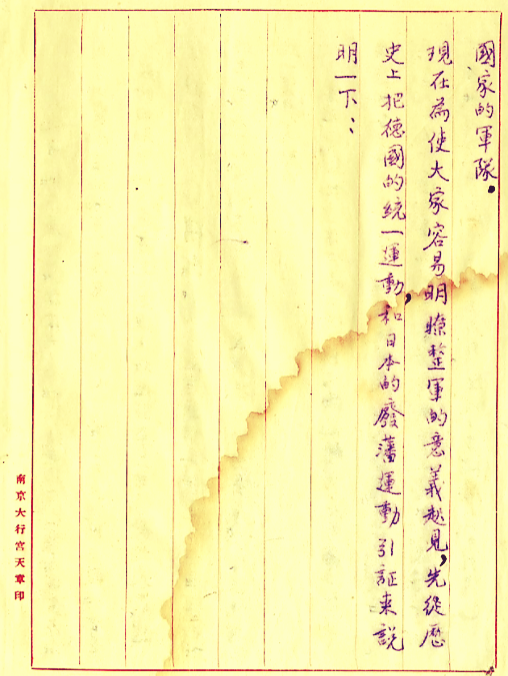 國家的軍隊。
現在為使大家容易明瞭整軍的意義起見，先從歷
史上把德國的統一運動，和日本的廢藩運動引証来說
明一下：
南京大行宮天章印